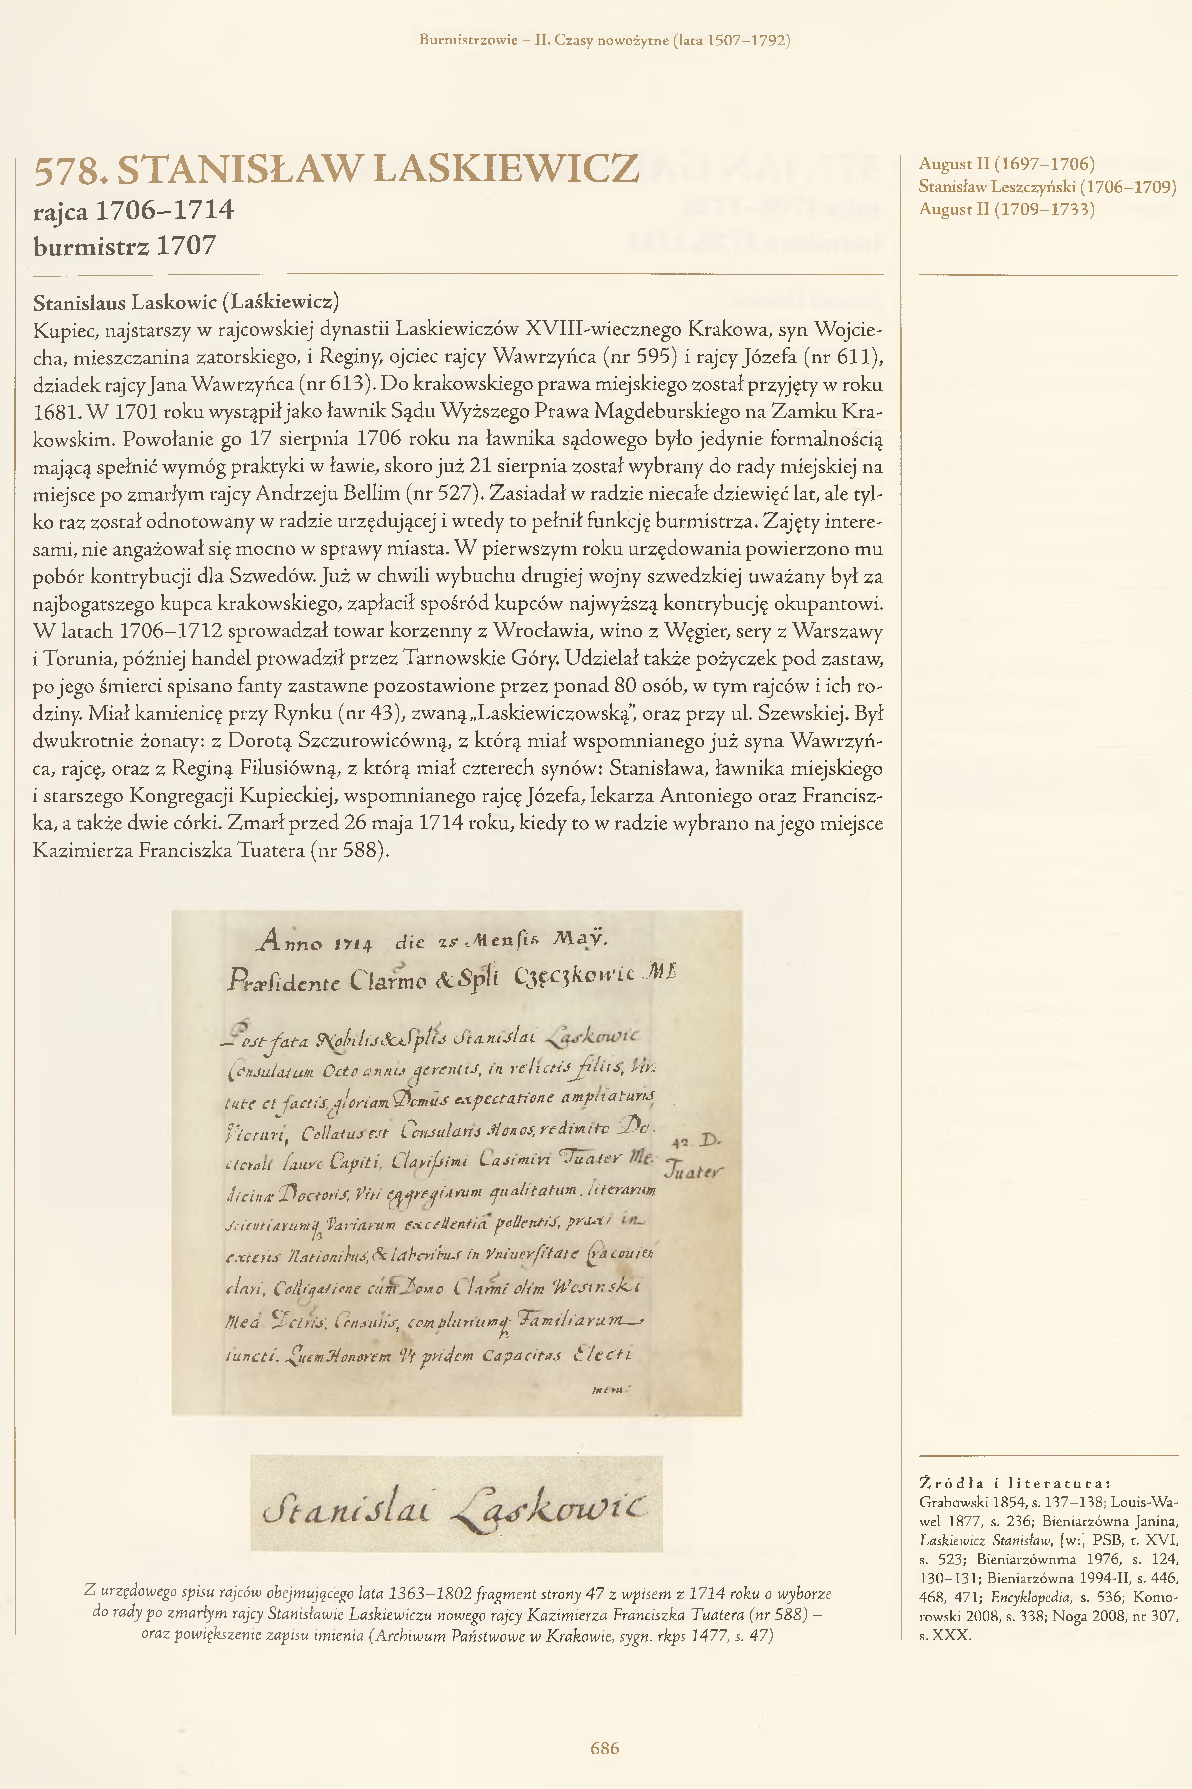 Burmistrzowie – II. Czasy nowożytne (lata 1507–1792)
578. STANISŁAW LASKIEWICZ
rajca 1706–1714
burmistrz 1707
August II (1697–1706)
Stanisław Leszczyński (1706–1709)
August II (1709–1733)
Stanislaus Laskowic (Laśkiewicz)
Kupiec, najstarszy w rajcowskiej dynastii Laskiewiczów XVIII-wiecznego Krakowa, syn Wojcie-
cha, mieszczanina zatorskiego, i Reginy, ojciec rajcy Wawrzyńca (nr 595) i rajcy Józefa (nr 611),
dziadek rajcy Jana Wawrzyńca (nr 613). Do krakowskiego prawa miejskiego został przyjęty w roku
1681. W 1701 roku wystąpił jako ławnik Sądu Wyższego Prawa Magdeburskiego na Zamku Kra-
kowskim. Powołanie go 17 sierpnia 1706 roku na ławnika sądowego było jedynie formalnością
mającą spełnić wymóg praktyki w ławie, skoro już 21 sierpnia został wybrany do rady miejskiej na
miejsce po zmarłym rajcy Andrzeju Bellim (nr 527). Zasiadał w radzie niecałe dziewięć lat, ale tyl-
ko raz został odnotowany w radzie urzędującej i wtedy to pełnił funkcję burmistrza. Zajęty intere-
sami, nie angażował się mocno w sprawy miasta. W pierwszym roku urzędowania powierzono mu
pobór kontrybucji dla Szwedów. Już w chwili wybuchu drugiej wojny szwedzkiej uważany był za
najbogatszego kupca krakowskiego, zapłacił spośród kupców najwyższą kontrybucję okupantowi.
W latach 1706–1712 sprowadzał towar korzenny z Wrocławia, wino z Węgier, sery z Warszawy
i Torunia, później handel prowadził przez Tarnowskie Góry. Udzielał także pożyczek pod zastaw,
po jego śmierci spisano fanty zastawne pozostawione przez ponad 80 osób, w tym rajców i ich ro-
dziny. Miał kamienicę przy Rynku (nr 43), zwaną „Laskiewiczowską”, oraz przy ul. Szewskiej. Był
dwukrotnie żonaty: z Dorotą Szczurowicówną, z którą miał wspomnianego już syna Wawrzyń-
ca, rajcę, oraz z Reginą Filusiówną, z którą miał czterech synów: Stanisława, ławnika miejskiego
i starszego Kongregacji Kupieckiej, wspomnianego rajcę Józefa, lekarza Antoniego oraz Francisz-
ka, a także dwie córki. Zmarł przed 26 maja 1714 roku, kiedy to w radzie wybrano na jego miejsce
Kazimierza Franciszka Tuatera (nr 588).
Anno 1714 die 25 Mensis Maÿ.
Præsidente Clarmo & Spli Czẹczkowic
Post fata Nobilis & Splis Stanislai Laskowic
Consulatum Octo annis gerentis, in relictis filiis, Vir-
tute et factis, gloriam Domus expectatione ampliaturis
Collatus est Consularis Honos, redimito Do-
ctorali lauro Capiti, Clarissimi Casimiri Tuater Me-
42. D.
Tuater
dicinæ Doctoris, Viri egregiarum qualitatum, literarum
scientiarumq Variarum excellentia pollentis, praxi in
exteris Nationibus, & laboribus in Vniuersitate Cracouien
clari, Colligatione cum Domo Clarmi olim Wosinski
Med Consulis, compluriumq Familiarum
iuncti. Quem Honorem Vt pridem Capacitas Electi
meru
Stanislai Laskowic
Z urzędowego spisu rajców obejmującego lata 1363–1802 fragment strony 47 z wpisem z 1714 roku o wyborze
do rady po zmarłym rajcy Stanisławie Laskiewiczu nowego rajcy Kazimierza Franciszka Tuatera (nr 588) –
oraz powiększenie zapisu imienia (Archiwum Państwowe w Krakowie, sygn. rkps 1477, s. 47)
Źródła i literatura:
Grabowski 1854, s. 137–138; Louis-Wa-
wel 1877, s. 236; Bieniarzówna Janina,
Laskiewicz Stanisław, [w:] PSB, t. XVI,
s. 523; Bieniarzównma 1976, s. 124,
130–131; Bieniarzówna 1994-II, s. 446,
468, 471; Encyklopedia, s. 536; Komo-
rowski 2008, s. 338; Noga 2008, nr 307,
s. XXX.
686